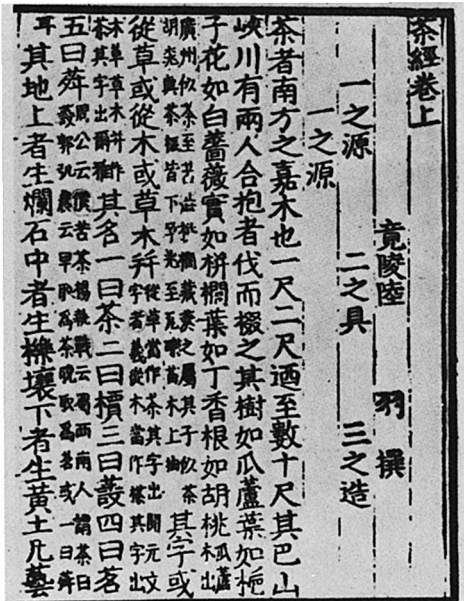 茶經卷上
竟陵陸 羽 撰
一之源 二之具 三之造
一之源
茶者南方之嘉木也一尺二尺廼至數十尺其巴山
峽川有兩人合抱者伐而掇之其樹如瓜蘆葉如梔
子花如白薔薇實如栟櫚葉如丁香根如胡桃瓜蘆木出
廣州似茶至苦澁栟櫚蒲葵之屬其子似茶胡桃與茶根皆下孕兆至瓦礫苗木上抽其字或
從草或從木或草木并從草當作茶其字出開元文字音義從木當作㮆其字出
本草草木并作茶其字出爾雅其名一曰茶二曰檟三曰蔎四曰茗
五曰荈周公云檟苦茶揚執戟云蜀西南人謂茶曰蔎郭弘農云早取為茶晚取為茗或一曰荈
耳其地上者生爛石中者生櫟壤下者生黃土凡藝